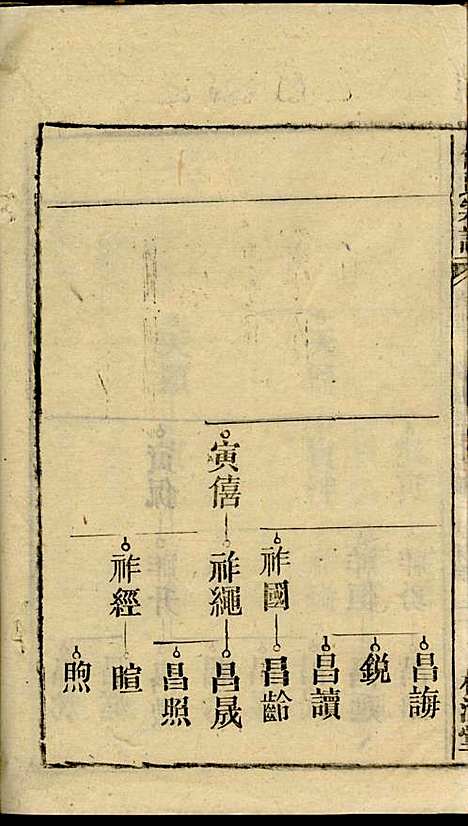 昌誨
銳
昌讀
祚國
昌齡
寅僖
祚繩
昌晟
昌照
祚經
暄
煦